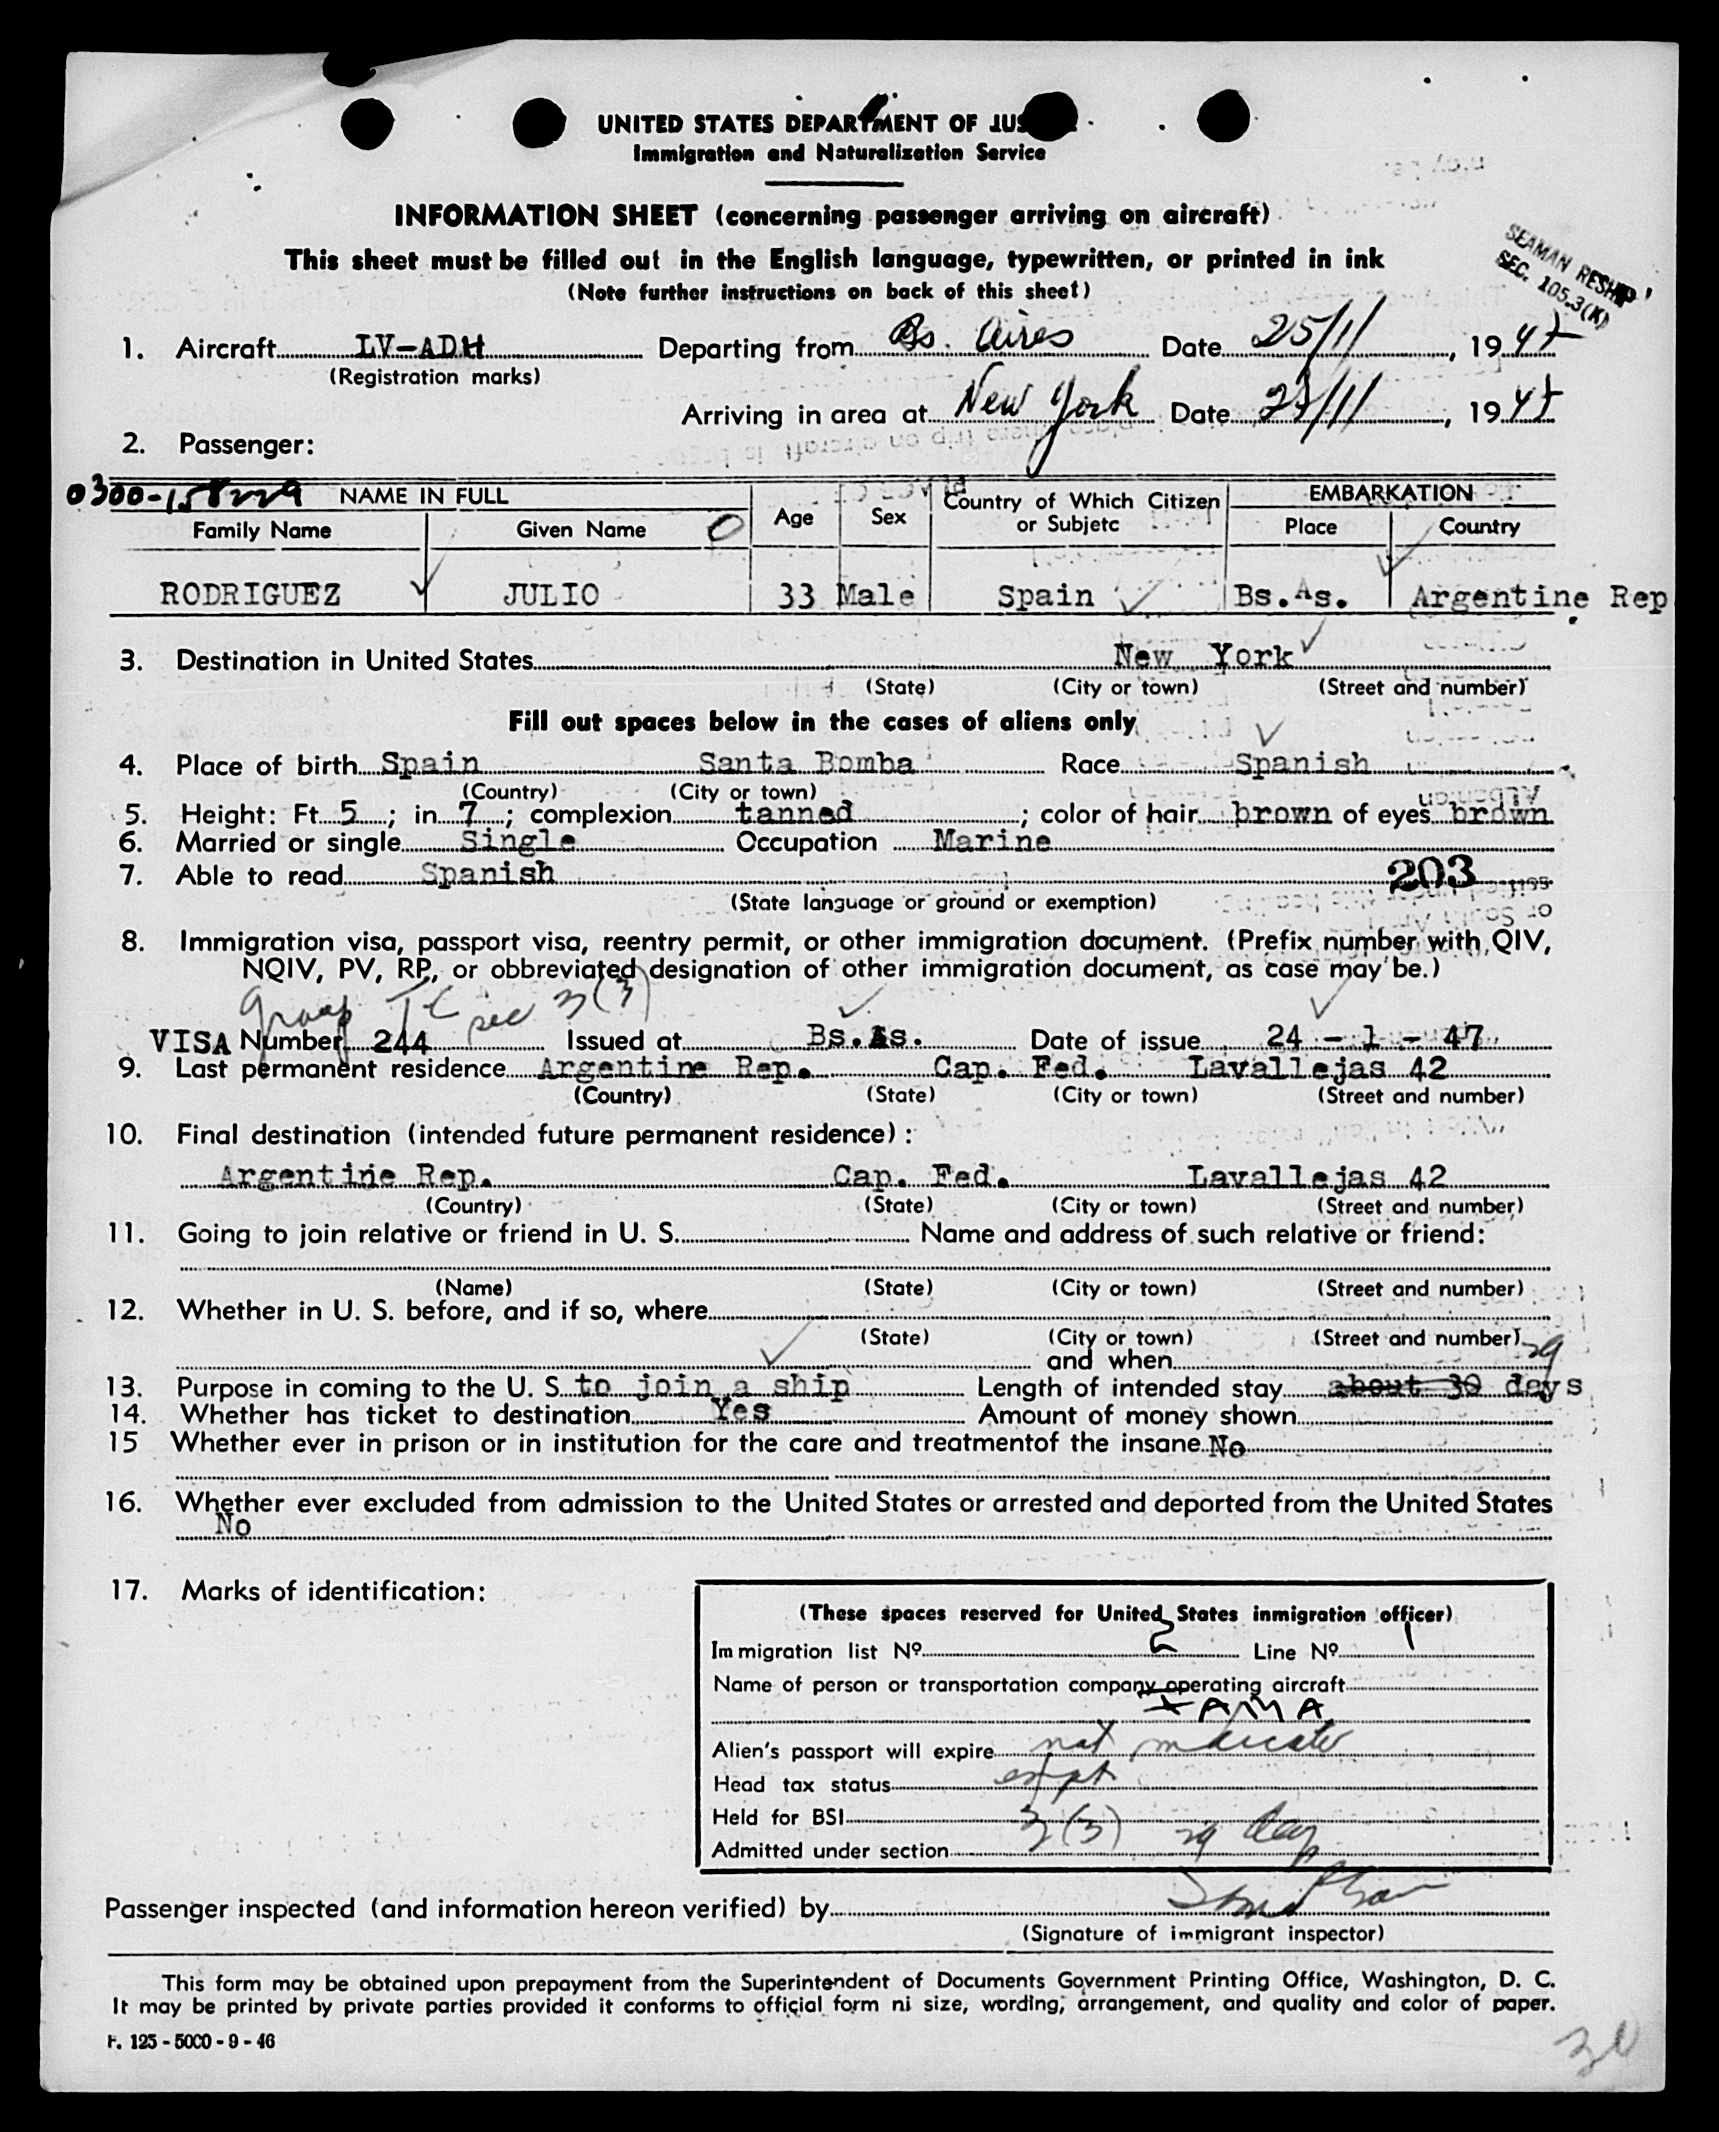 UNITED STATES DEPARTMENT OF JUS
Immigration and Naturalization Service
INFORMATION SHEET (concerning passenger arriving on aircraft)
This sheet must be filled out in the English language, typewritten, or printed in ink
(Note further instructions on back of this sheet)
SEAMAN RESHIP
SEC. 105.3(K)
1. Aircraft LV-ADH Departing from Bs. Aires Date 25/11, 1947
(Registration marks)
Arriving in area at New York Date 27/11, 1947
2. Passenger:
0300-158229 NAME IN FULL Age Sex Country of Which Citizen or Subjetc EMBARKATION
Family Name Given Name Place Country
RODRIGUEZ JULIO 33 Male Spain Bs.As. Argentine Rep.
3. Destination in United States New York
(State) (City or town) (Street and number)
Fill out spaces below in the cases of aliens only
4. Place of birth Spain Santa Bomba Race Spanish
(Country) (City or town)
5. Height: Ft. 5; in. 7; complexion tanned; color of hair brown of eyes brown
6. Married or single Single Occupation Marine
7. Able to read Spanish 203
(State language or ground or exemption)
8. Immigration visa, passport visa, reentry permit, or other immigration document. (Prefix number with QIV,
NQIV, PV, RP, or obbreviated designation of other immigration document, as case may be.)
Group TC sec 3(3)
VISA Number 244 Issued at Bs.As. Date of issue 24 - 1 - 47
9. Last permanent residence Argentine Rep. Cap. Fed. Lavallejas 42
(Country) (State) (City or town) (Street and number)
10. Final destination (intended future permanent residence) :
Argentine Rep. Cap. Fed. Lavallejas 42
(Country) (State) (City or town) (Street and number)
11. Going to join relative or friend in U. S. Name and address of such relative or friend:
(Name) (State) (City or town) (Street and number)
12. Whether in U. S. before, and if so, where
(State) (City or town) (Street and number)
and when 29
13. Purpose in coming to the U. S. to join a ship Length of intended stay about 30 days
14. Whether has ticket to destination Yes Amount of money shown
15 Whether ever in prison or in institution for the care and treatmentof the insane No
16. Whether ever excluded from admission to the United States or arrested and deported from the United States
No
17. Marks of identification:
(These spaces reserved for United States inmigration officer)
Immigration list Nº 2 Line Nº 1
Name of person or transportation company operating aircraft
FAMA
Alien's passport will expire not indicate
Head tax status
Held for BSI
Admitted under section 3(3) 29 day
Passenger inspected (and information hereon verified) by
(Signature of immigrant inspector)
This form may be obtained upon prepayment from the Superintendent of Documents Government Printing Office, Washington, D. C.
It may be printed by private parties provided it conforms to official form ni size, wording, arrangement, and quality and color of paper.
F. 125 - 5000 - 9 - 46